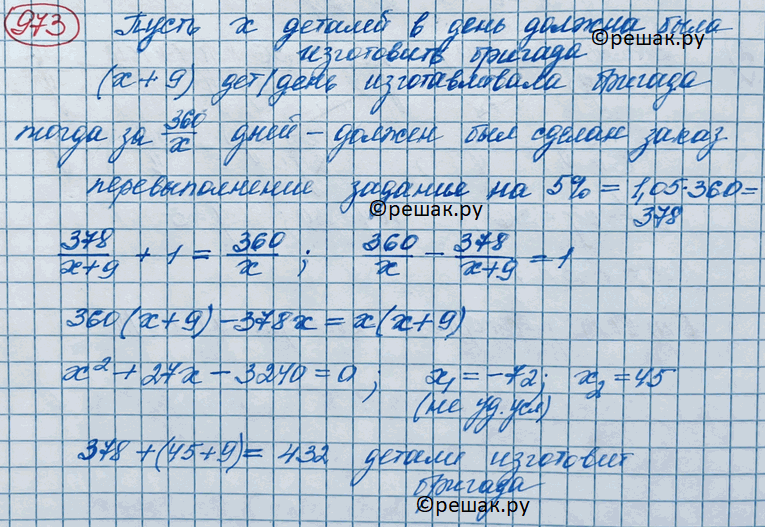 973 Пусть x деталей в день должна была
©решак.ру
изготовить бригада
(x+9) дет/день изготавливала бригада
тогда за 360/x дней – должен был сделан заказ
перевыполнение задания на 5% = 1,05·360=
378
©решак.ру
378/(x+9) + 1 = 360/x ; 360/x – 378/(x+9) = 1
360(x+9) – 378x = x(x+9)
x² + 27x – 3240 = 0 ; x₁ = –72; x₂ = 45
(не уд. усл)
378 + (45+9) = 432 детали изготовит
бригада
©решак.ру